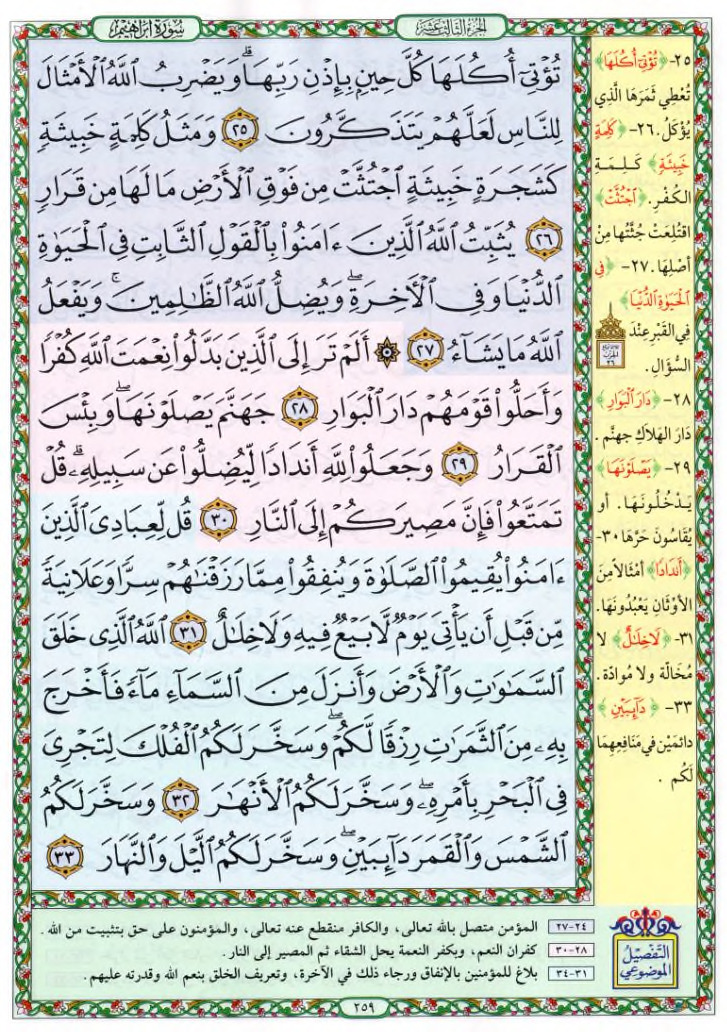 سُورَةُ إِبْرَاهِيم
الجزء الثالث عشر
تُؤْتِىٓ أُكُلَهَا كُلَّ حِينٍۭ بِإِذْنِ رَبِّهَا ۗ وَيَضْرِبُ ٱللَّهُ ٱلْأَمْثَالَ
لِلنَّاسِ لَعَلَّهُمْ يَتَذَكَّرُونَ ٢٥ وَمَثَلُ كَلِمَةٍ خَبِيثَةٍ
كَشَجَرَةٍ خَبِيثَةٍ ٱجْتُثَّتْ مِن فَوْقِ ٱلْأَرْضِ مَا لَهَا مِن قَرَارٍ
٢٦ يُثَبِّتُ ٱللَّهُ ٱلَّذِينَ ءَامَنُوا۟ بِٱلْقَوْلِ ٱلثَّابِتِ فِى ٱلْحَيَوٰةِ
ٱلدُّنْيَا وَفِى ٱلْءَاخِرَةِ ۖ وَيُضِلُّ ٱللَّهُ ٱلظَّـٰلِمِينَ ۚ وَيَفْعَلُ
ٱللَّهُ مَا يَشَآءُ ٢٧ ۞ أَلَمْ تَرَ إِلَى ٱلَّذِينَ بَدَّلُوا۟ نِعْمَتَ ٱللَّهِ كُفْرًا
وَأَحَلُّوا۟ قَوْمَهُمْ دَارَ ٱلْبَوَارِ ٢٨ جَهَنَّمَ يَصْلَوْنَهَا ۖ وَبِئْسَ
ٱلْقَرَارُ ٢٩ وَجَعَلُوا۟ لِلَّهِ أَندَادًا لِّيُضِلُّوا۟ عَن سَبِيلِهِۦ ۗ قُلْ
تَمَتَّعُوا۟ فَإِنَّ مَصِيرَكُمْ إِلَى ٱلنَّارِ ٣٠ قُل لِّعِبَادِىَ ٱلَّذِينَ
ءَامَنُوا۟ يُقِيمُوا۟ ٱلصَّلَوٰةَ وَيُنفِقُوا۟ مِمَّا رَزَقْنَـٰهُمْ سِرًّا وَعَلَانِيَةً
مِّن قَبْلِ أَن يَأْتِىَ يَوْمٌ لَّا بَيْعٌ فِيهِ وَلَا خِلَـٰلٌ ٣١ ٱللَّهُ ٱلَّذِى خَلَقَ
ٱلسَّمَـٰوَٰتِ وَٱلْأَرْضَ وَأَنزَلَ مِنَ ٱلسَّمَآءِ مَآءً فَأَخْرَجَ
بِهِۦ مِنَ ٱلثَّمَرَٰتِ رِزْقًا لَّكُمْ ۖ وَسَخَّرَ لَكُمُ ٱلْفُلْكَ لِتَجْرِىَ
فِى ٱلْبَحْرِ بِأَمْرِهِۦ ۖ وَسَخَّرَ لَكُمُ ٱلْأَنْهَـٰرَ ٣٢ وَسَخَّرَ لَكُمُ
ٱلشَّمْسَ وَٱلْقَمَرَ دَآئِبَيْنِ ۖ وَسَخَّرَ لَكُمُ ٱلَّيْلَ وَٱلنَّهَارَ ٣٣
٢٥- ﴿تُؤْتِي أُكُلَهَا﴾
تُعْطِي ثَمَرَهَا الَّذِي
يُؤْكَلُ. ٢٦- ﴿كَلِمَةٍ
خَبِيثَةٍ﴾ كَلِمَةِ
الكُفْرِ. ﴿اجْتُثَّتْ﴾
اقتُلِعَتْ جُثَّتُها مِنْ
أصْلِهَا. ٢٧- ﴿فِي
الْحَيَوٰةِ الدُّنْيَا﴾
فِي القَبْرِ عِنْدَ
السُّؤَالِ.
٢٨- ﴿دَارَ الْبَوَارِ﴾
دَارَ الهَلَاكِ جهنَّم.
٢٩- ﴿يَصْلَوْنَهَا﴾
يَدْخُلُونَهَا. أو
يُقَاسُونَ حَرَّهَا ٣٠-
﴿أَندَادًا﴾ أمْثَالًا مِنَ
الأوْثَانِ يَعْبُدُونَهَا.
٣١- ﴿لَا خِلَٰلٌ﴾ لا
مُخَالَّة ولا مُوادَّة.
٣٣- ﴿دَآئِبَيْنِ﴾
دائمَيْنِ في مَنَافِعِهِمَا
لَكُم.
التفصيل الموضوعي
٢٤-٢٧ المؤمن متصل بالله تعالى، والكافر منقطع عنه تعالى، والمؤمنون على حق بتثبيت من الله.
٢٨-٣٠ كفران النعم، وبكفر النعمة يحل الشقاء ثم المصير إلى النار.
٣١-٣٤ بلاغ للمؤمنين بالإنفاق ورجاء ذلك في الآخرة، وتعريف الخلق بنعم الله وقدرته عليهم.
٢٥٩